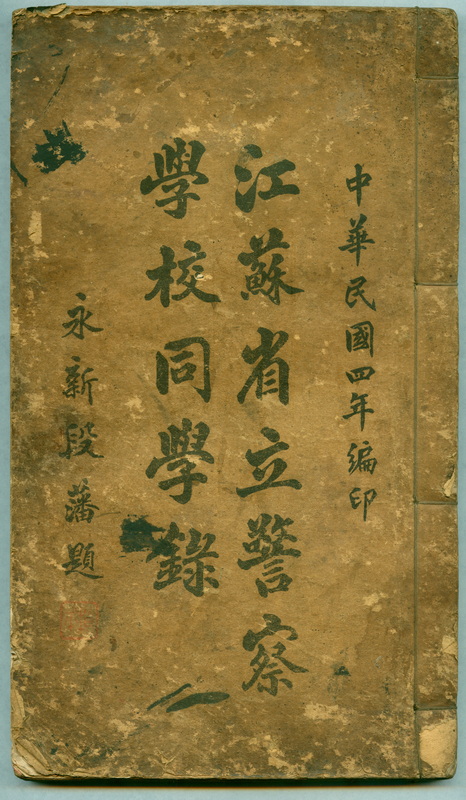 中華民國四年編印
江蘇省立警察
學校同學錄
永新段藩題